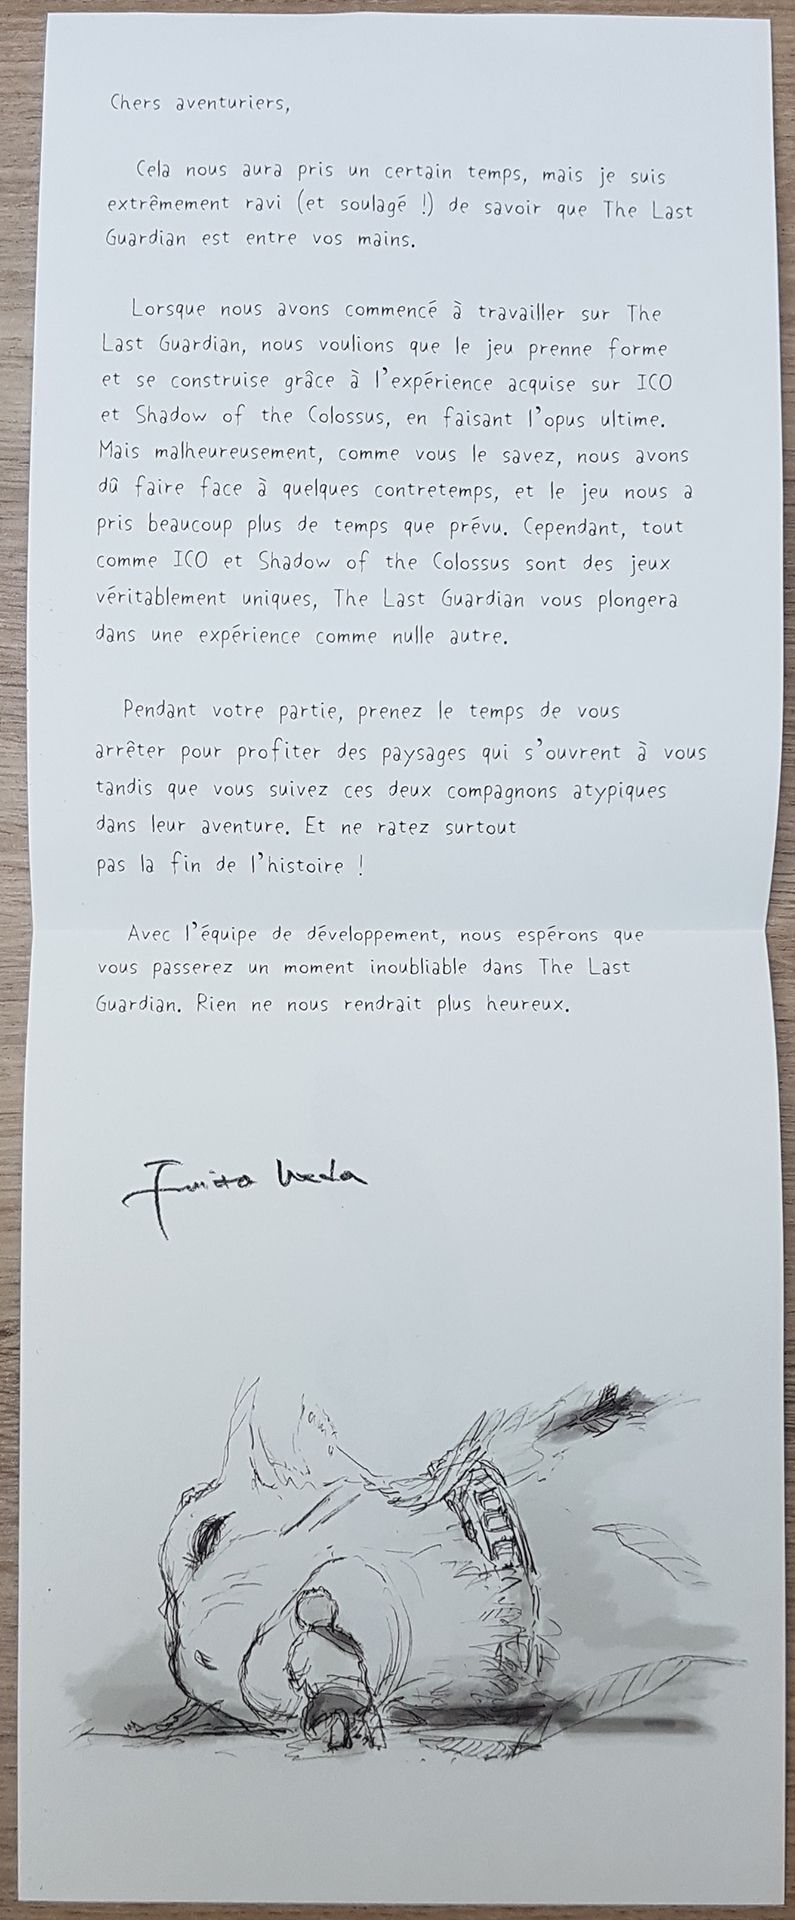 Chers aventuriers,
Cela nous aura pris un certain temps, mais je suis
extrêmement ravi (et soulagé !) de savoir que The Last
Guardian est entre vos mains.
Lorsque nous avons commencé à travailler sur The
Last Guardian, nous voulions que le jeu prenne forme
et se construise grâce à l'expérience acquise sur ICO
et Shadow of the Colossus, en faisant l'opus ultime.
Mais malheureusement, comme vous le savez, nous avons
dû faire face à quelques contretemps, et le jeu nous a
pris beaucoup plus de temps que prévu. Cependant, tout
comme ICO et Shadow of the Colossus sont des jeux
véritablement uniques, The Last Guardian vous plongera
dans une expérience comme nulle autre.
Pendant votre partie, prenez le temps de vous
arrêter pour profiter des paysages qui s'ouvrent à vous
tandis que vous suivez ces deux compagnons atypiques
dans leur aventure. Et ne ratez surtout
pas la fin de l'histoire !
Avec l'équipe de développement, nous espérons que
vous passerez un moment inoubliable dans The Last
Guardian. Rien ne nous rendrait plus heureux.
Fumito Ueda